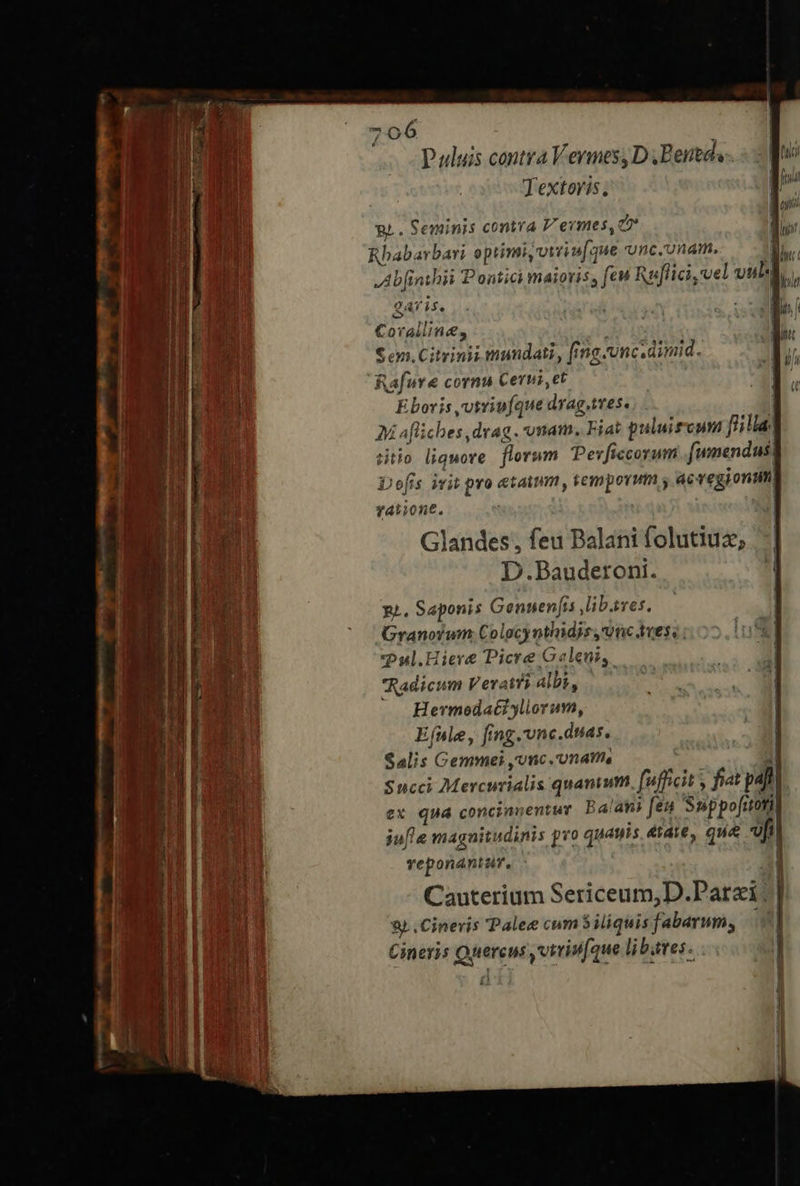 706
Puluis contra Vermes, D. Bened.
Textoris.
℞. Seminis contra Vermes, &
Rhabarbari optimi, vtriusque vnc. vnam.
Absinthii Pontici maioris, seu Rustici, vel vul
garis.
Corallinæ,
Sem. Citrinii mundati, sing. vnc. dimid.
Rasuræ cornu Cerui, et
Eboris, vtriusque drag. tres.
Mastiches, drag. vnam. Fiat puluis cum stilla
titio liquore florum Persiccorum sumendus
Dosis irit pro ætatum, temporum, ac regionum
ratione.
Glandes, seu Balani solutiuæ,
D. Bauderoni.
℞. Saponis Genuensis, lib. tres.
Granorum Colocynthidis, vnc. tres.
Pul. Hieræ Picræ Galeni,
Radicum Veratri albi,
Hermodactyllorum,
Esulæ, sing. vnc. duas.
Salis Gemmei, vnc. vnam.
Succi Mercurialis quantum sufficit, fiat past
ex qua concinnentur Balani seu Suppositori
iustæ magnitudinis pro quauis ætate, quæ vsi
reponantur.
Cauterium Sericeum, D. Paræi.
℞. Cineris Paleæ cum Siliquis fabarum,
Cineris Quercus, vtriusque lib. tres.